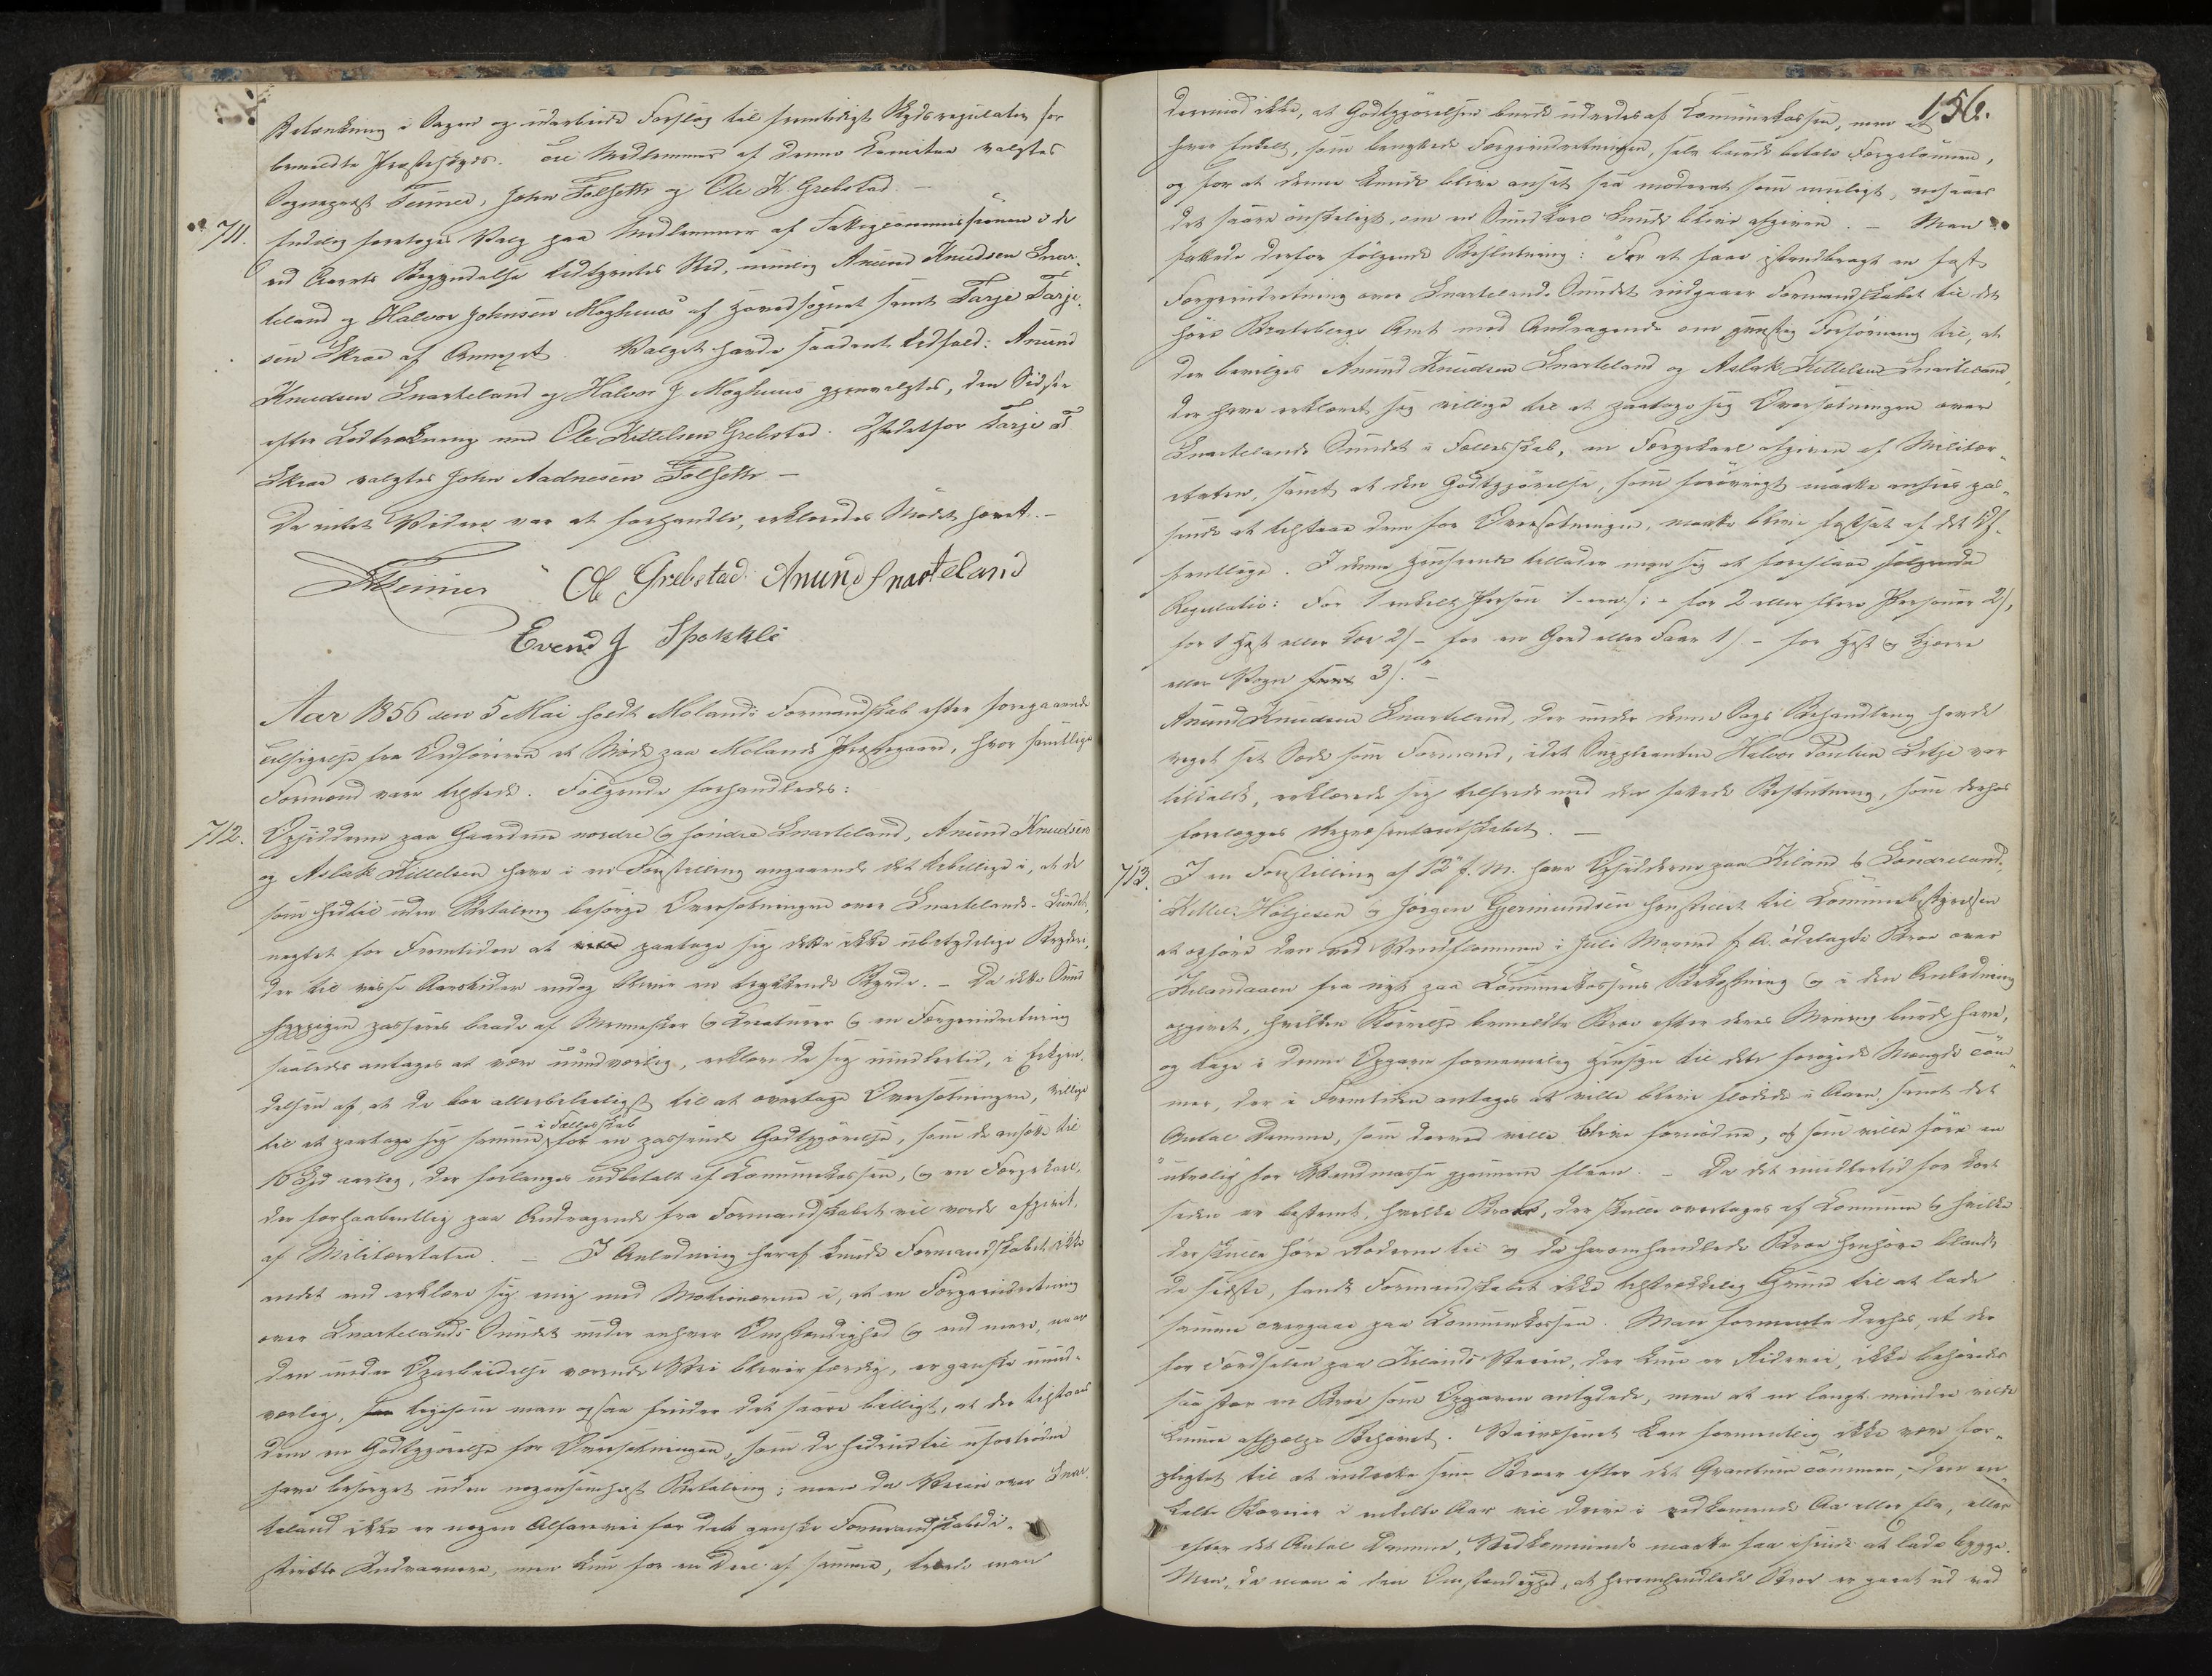 Betænkning i Sagen og udarbeide Forslag til fremtidigt Skydsregulativ for
bemeldte Præsteskyds. Til Medlemmer af denne Komitee valgtes
Sogneprest Feiner, John Folseth og Ole K. Grebstad. –
711. Endelig foretoges Valg paa Medlemmer af Fattigcommissionen i de
ved Aarets Begyndelse udtraadtes Sted, nemlig Anund Knudsen Snar-
teland og Halvor Johnsen Moghuus af Hovedsognet samt Tarje Tarje-
sen Skree af Annexet. Valget havde saadant Udfald: Anund
Knudsen Snarteland og Halvor J Moghuus gjenvalgtes, den Sidste
efter Lodtrækning med Ole Kittelsen Grebstad. Istedetfor Tarje T
Skree valgtes John Aadnesen Folseth –
Da intet Videre var at forhandle, erklæredes Mødet hævet. –
Feiner Ole Grebstad Anund Snarteland
Evend J Spokkli
Aar 1856 den 5 Mai holdt Molands Formandskab efter foregaaende
Tilsigelse fra Ordføreren et Møde paa Molands Præstegaard, hvor samtlige
Formænd vare tilstede. Følgende forhandledes:
712. Opsidderne paa Gaardene nordre & søndre Snarteland, Anund Knudsen
og Aslak Kittelsen have i en Forestilling angaaende det Ubillige i, at de
som hidtil uden Betaling besørge Oversætningen over Snartelands-Sundet,
negtet for Fremtiden at paatage sig dette ikke ubetydelige Bryderi,
der til visse Aarstider endog bliver en trykkende Byrde. – Da dette Sund
hyppigen passeres baade af Mennesker & Kreaturer & en Færgeindretning
saaledes antages at være uundværlig, erklære de sig imidlertid, i Erkjen-
delsen af at de boe allerbeleiligst til at overtage Oversætningen, villige
til at paatage sig samme i Fællesskab for en passende Godtgjørelse, som de ansætte til
16 Spd aarlig, der forlanges udbetalt af Kommunekassen, & en Færgekarl,
der forhaabentlig paa Andragende fra Formandskabet vil vorde afgivet
af Militæretaten. – I Anledning heraf kunde Formandskabet ikke
andet end erklære sig enig med Motionærerne i, at en Færgeindretning
over Snartelands Sundet under enhver Omstændighed & end mere, naar
den under Oparbeidelse værende Vei bliver færdig, er ganske uund-
værlig, ligesom man ogsaa finder det saare billigt, at der tilstaaes
dem en Godtgjørelse for Oversætningen, som de hidindtil ufortrødne
have besørget uden nogensomhelst Betaling; men da Veien over Snar-
teland ikke er nogen Alfarevei for det ganske Formandskabsdi-
strikts Indvaanere, men kun for en Deel af samme, troede man
156.
derimod ikke, at Godtgjørelsen burde udredes af Kommunekassen, men at
hver Enkelt, som benyttede Færgeindretningen, selv burde betale Færgelønnen,
og for at denne kunde blive ansat saa moderat som muligt, ansaaes
det saare ønskeligt, om en Sundkarl kunde blive afgiven. – Man
fattede derfor følgende Beslutning: "For at faae istandbragt en fast
Færgeindretning over Snartelands Sundet indgaaer Formandskabet til det
høie Bratsbergs Amt med Andragende om gunstig Forføining til, at
der bevilges Anund Knudsen Snarteland og Aslak Kittelsen Snarteland,
der have erklæret sig villige til at paatage sig Oversætningen over
Snartelands Sundet i Fællesskab, en Færgekarl afgiven af Militær-
etaten, samt at den Godtgjørelse, som forøvrigt maatte ansees pas-
sende at tilstaae dem for Oversætningen, maatte blive fastsat af det Of-
fentlige. I denne Henseende tillader man sig at foreslaae følgende
Regulativ: For 1 enkelt Person 1 – for 2 eller flere Personer 2/,
for 1 Hest eller Koe 2/ – for en Gjed eller Faar 1/ – for Hest & Kjerre
eller Vogn 3/." –
Anund Knudsen Snarteland, der under denne Sags Behandling havde
veget sit Sæde som Formand, idet Suppleanten Halvor Poulsen Setje var
tilkaldt, erklærede sig tilfreds med den fattede Beslutning, som derhos
forelægges Repræsentantskabet. –
713. I en Forestilling af 12te f. M. have Opsidderne paa Kiland & Søndreland,
Kittel Høljesen & Jørgen Gjermundsen henstillet til Kommunebestyrelsen
at opføre den ved Vandflommen i Juli Maaned f. A. ødelagte Broe over
Kilandsaaen fra nyt paa Kommunekassens Bekostning & i den Anledning
opgivet, hvilken Størrelse bemeldte Broe efter deres Mening burde have,
og tage i denne Opgave fornemmelig Hensyn til den forøgede Mængde Tøm-
mer, der i Fremtiden antages at ville blive flødet i Aaen, samt det
Antal Damme, som derved ville blive fornødne, & som ville føre en
"utrolig" stor Vandmasse gjennem Elven. – Da det imidlertid for kort
siden er bestemt, hvilke Broer, der skulle overtages af Kommunen & hvilke
der skulle høre Roderne til & da heromhandlede Broe henhøre blandt
de sidste, fandt Formandskabet ikke tilstrækkelig Grund til at lade
samme overgaae paa Kommunekassen. Man formeente derhos, at der
for Færdselen paa Kilands Veien, der kun er Ridevei, ikke behøvedes
saa stor en Broe som Opgaven antydede, men at en langt mindre vilde
kunne afhjælpe Behovet. Veivæsenet kan formentlig ikke være for-
pligtet til at indrette sine Broer efter det Qvantum Tømmer, den en-
kelte Skoveier i enkelte Aar vil drive i vedkommende Aa eller Elv, eller
efter det Antal Damme, Vedkommende maatte faae isinde at lade bygge.
Men, da man i den Omstændighed, at heromhandlede Broe er gaaet ud ved